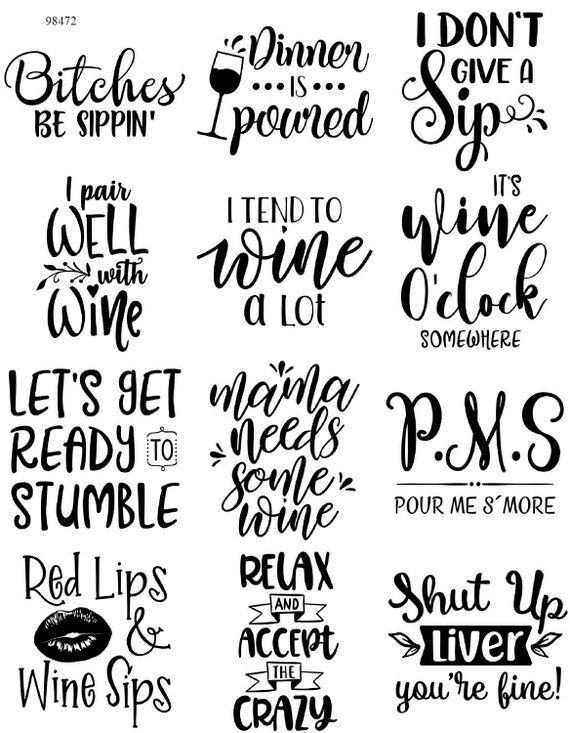 98472
Bitches
BE SIPPIN'
Dinner
IS
poured
I DON'T
GIVE A
Sip
I pair
WELL
with
Wine
I TEND TO
wine
a Lot
IT'S
wine
O'clock
SOMEWHERE
LET'S GET
READY TO
STUMBLE
mama
needs
some
wine
P.M.S
POUR ME S´MORE
Red Lips
&
Wine Sips
RELAX
AND
ACCEPT
THE
CRAZY
Shut Up
Liver
you're fine!